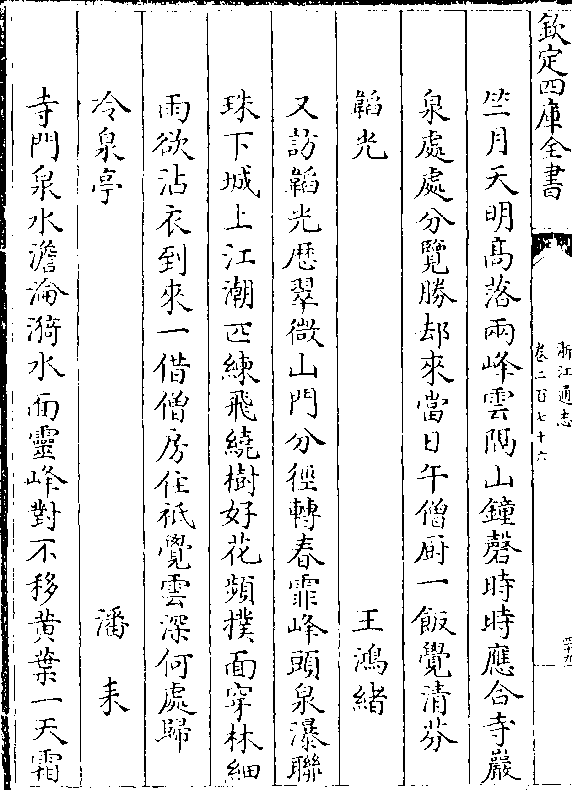 欽定四庫全書
浙江通志
卷二百七十六
四十九
竺月天明髙落兩峰雲隔山鐘磬時時應合寺巖
泉處處分覽勝却來當日午僧厨一飯覺清芬
韜光 王鴻緒
又訪韜光歴翠微山門分徑轉春霏峰頭泉瀑聯
珠下城上江潮匹練飛繞樹好花頻撲面穿林細
雨欲沾衣到來一借僧房住祇覺雲深何處歸
冷泉亭 潘耒
寺門泉水澹淪漪水面靈峰對不移黄葉一天霜